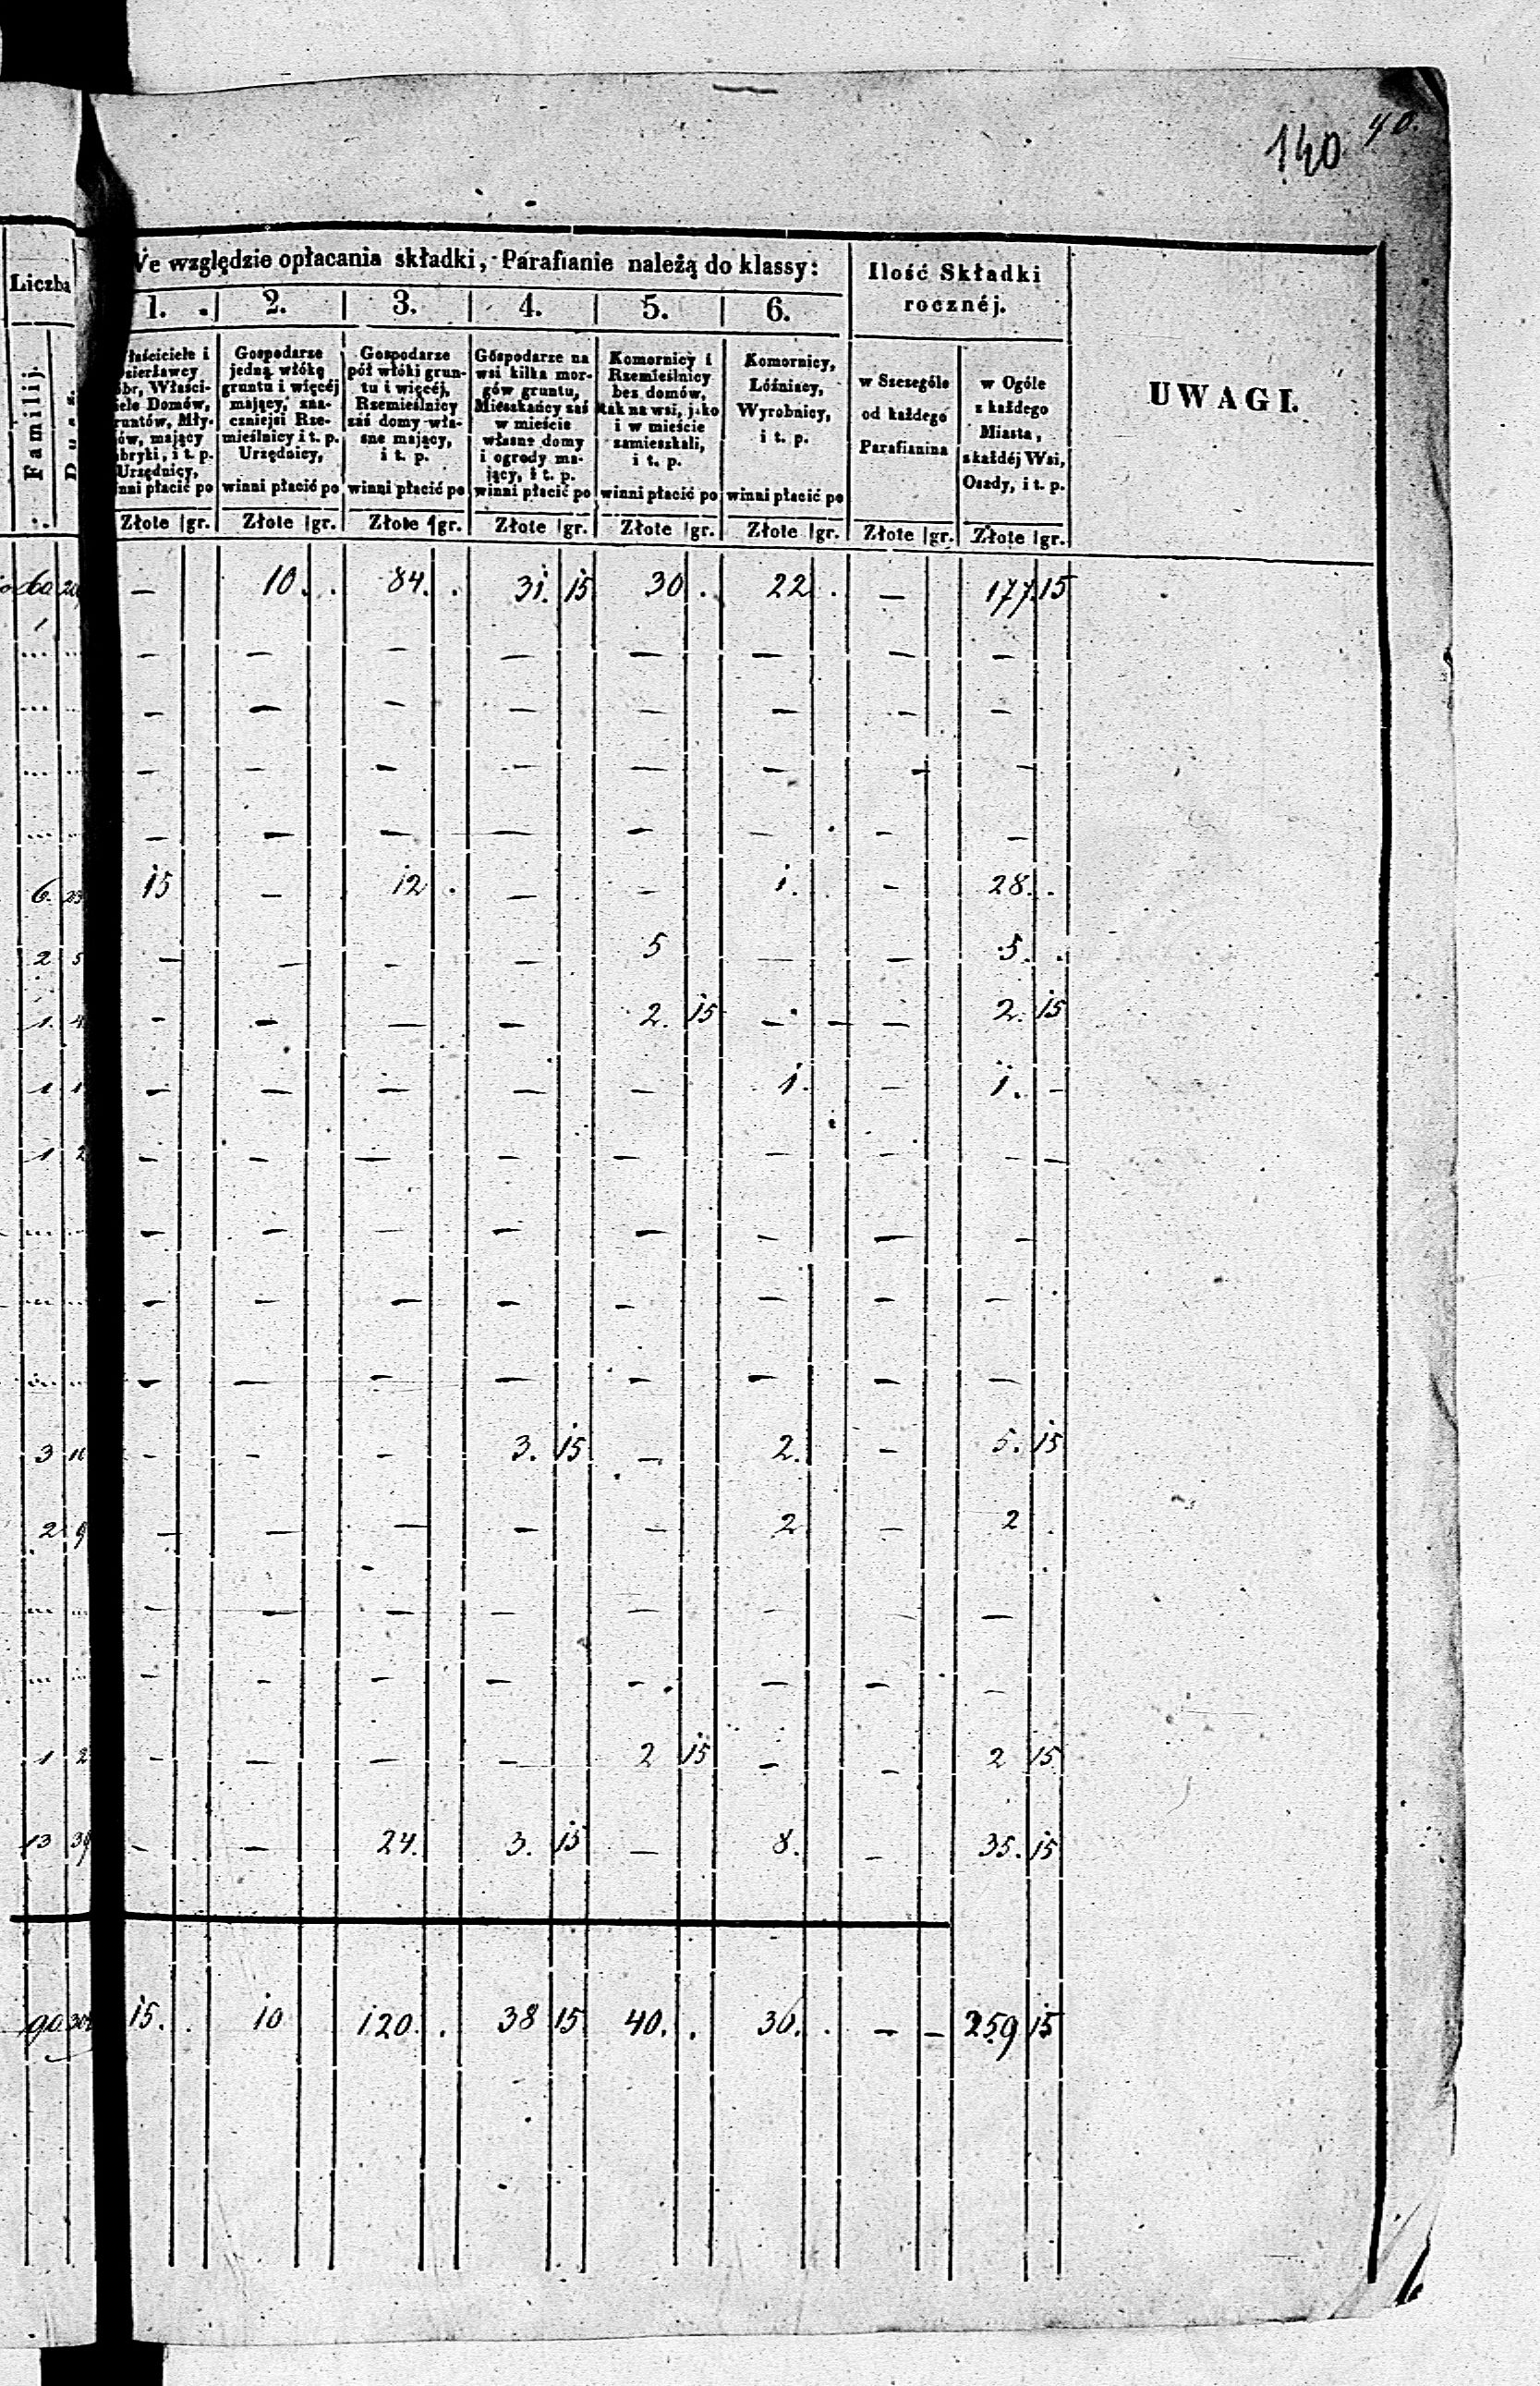 140 40.
We względzie opłacania składki, Parafianie należą do klassy:
Liczba
Ilość Składki
rocznéj.
UWAGI.
1. 2. 3. 4. 5. 6.
Familij.
Właściciele i
Dzierżawcy
Dóbr, Właści-
ciele Domów,
Gruntów, Mły-
nów, mający
Fabryki, i t. p.
Urzędnicy,
winni płacić po
Gospodarze
jedną włókę
gruntu i więcéj
mający, zna-
czniejsi Rze-
mieślnicy i t. p.
Urzędnicy,
winni płacić po
Gospodarze
pół włóki grun-
tu i więcéj,
Rzemieślnicy
zaś domy wła-
sne mający,
i t. p.
winni płacić po
Gospodarze na
wsi kilka mor-
gów gruntu,
Mieszkańcy zaś
w mieście
własne domy
i ogrody ma-
jący, i t. p.
winni płacić po
Komornicy i
Rzemieślnicy
bez domów,
tak na wsi, jako
i w mieście
zamieszkali,
i t. p.
winni płacić po
Komornicy,
Lóźniacy,
Wyrobnicy,
i t. p.
winni płacić po
w Szczególe
od każdego
Parafianina
w Ogóle
z każdego
Miasta,
z każdéj Wsi,
Osady, i t. p.
Złote gr. Złote gr. Złote gr. Złote gr. Złote gr. Złote gr. Złote gr. Złote gr.
60 — 10. . 84. . 31. 15 30 . 22 . — 177. 15
... ... — — — — — — — —
... ... — — — — — — — —
... ... — — — — — — — —
... ... — — — — — — — —
6. 15 — 12 . — — 1. — 28. .
2 5 — — — — 5 — — 5. .
1. 4 — — — — 2. 15 — — — 2. 15
1 1 — — — — — 1. — 1. —
1 2 — — — — — — — — —
... ... — — — — — — — —
... ... — — — — — — — —
... ... — — — — — — — —
3 — — — 3. 15 — 2. — 5. 15
2 9 — — — — — 2 — 2 .
... ... — — — — — — — —
... ... — — — — — — — —
1 2 — — — — 2 15 — — 2 15
13 — — 24. 3. 15 — 8. — 35. 15
90 15. . 10 120. . 38 15 40. . 30. . — — 259 15